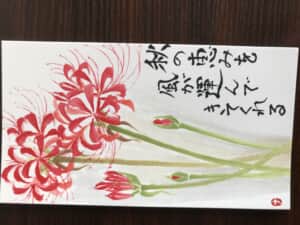 秋の恵みを
風が運んで
きてくれる